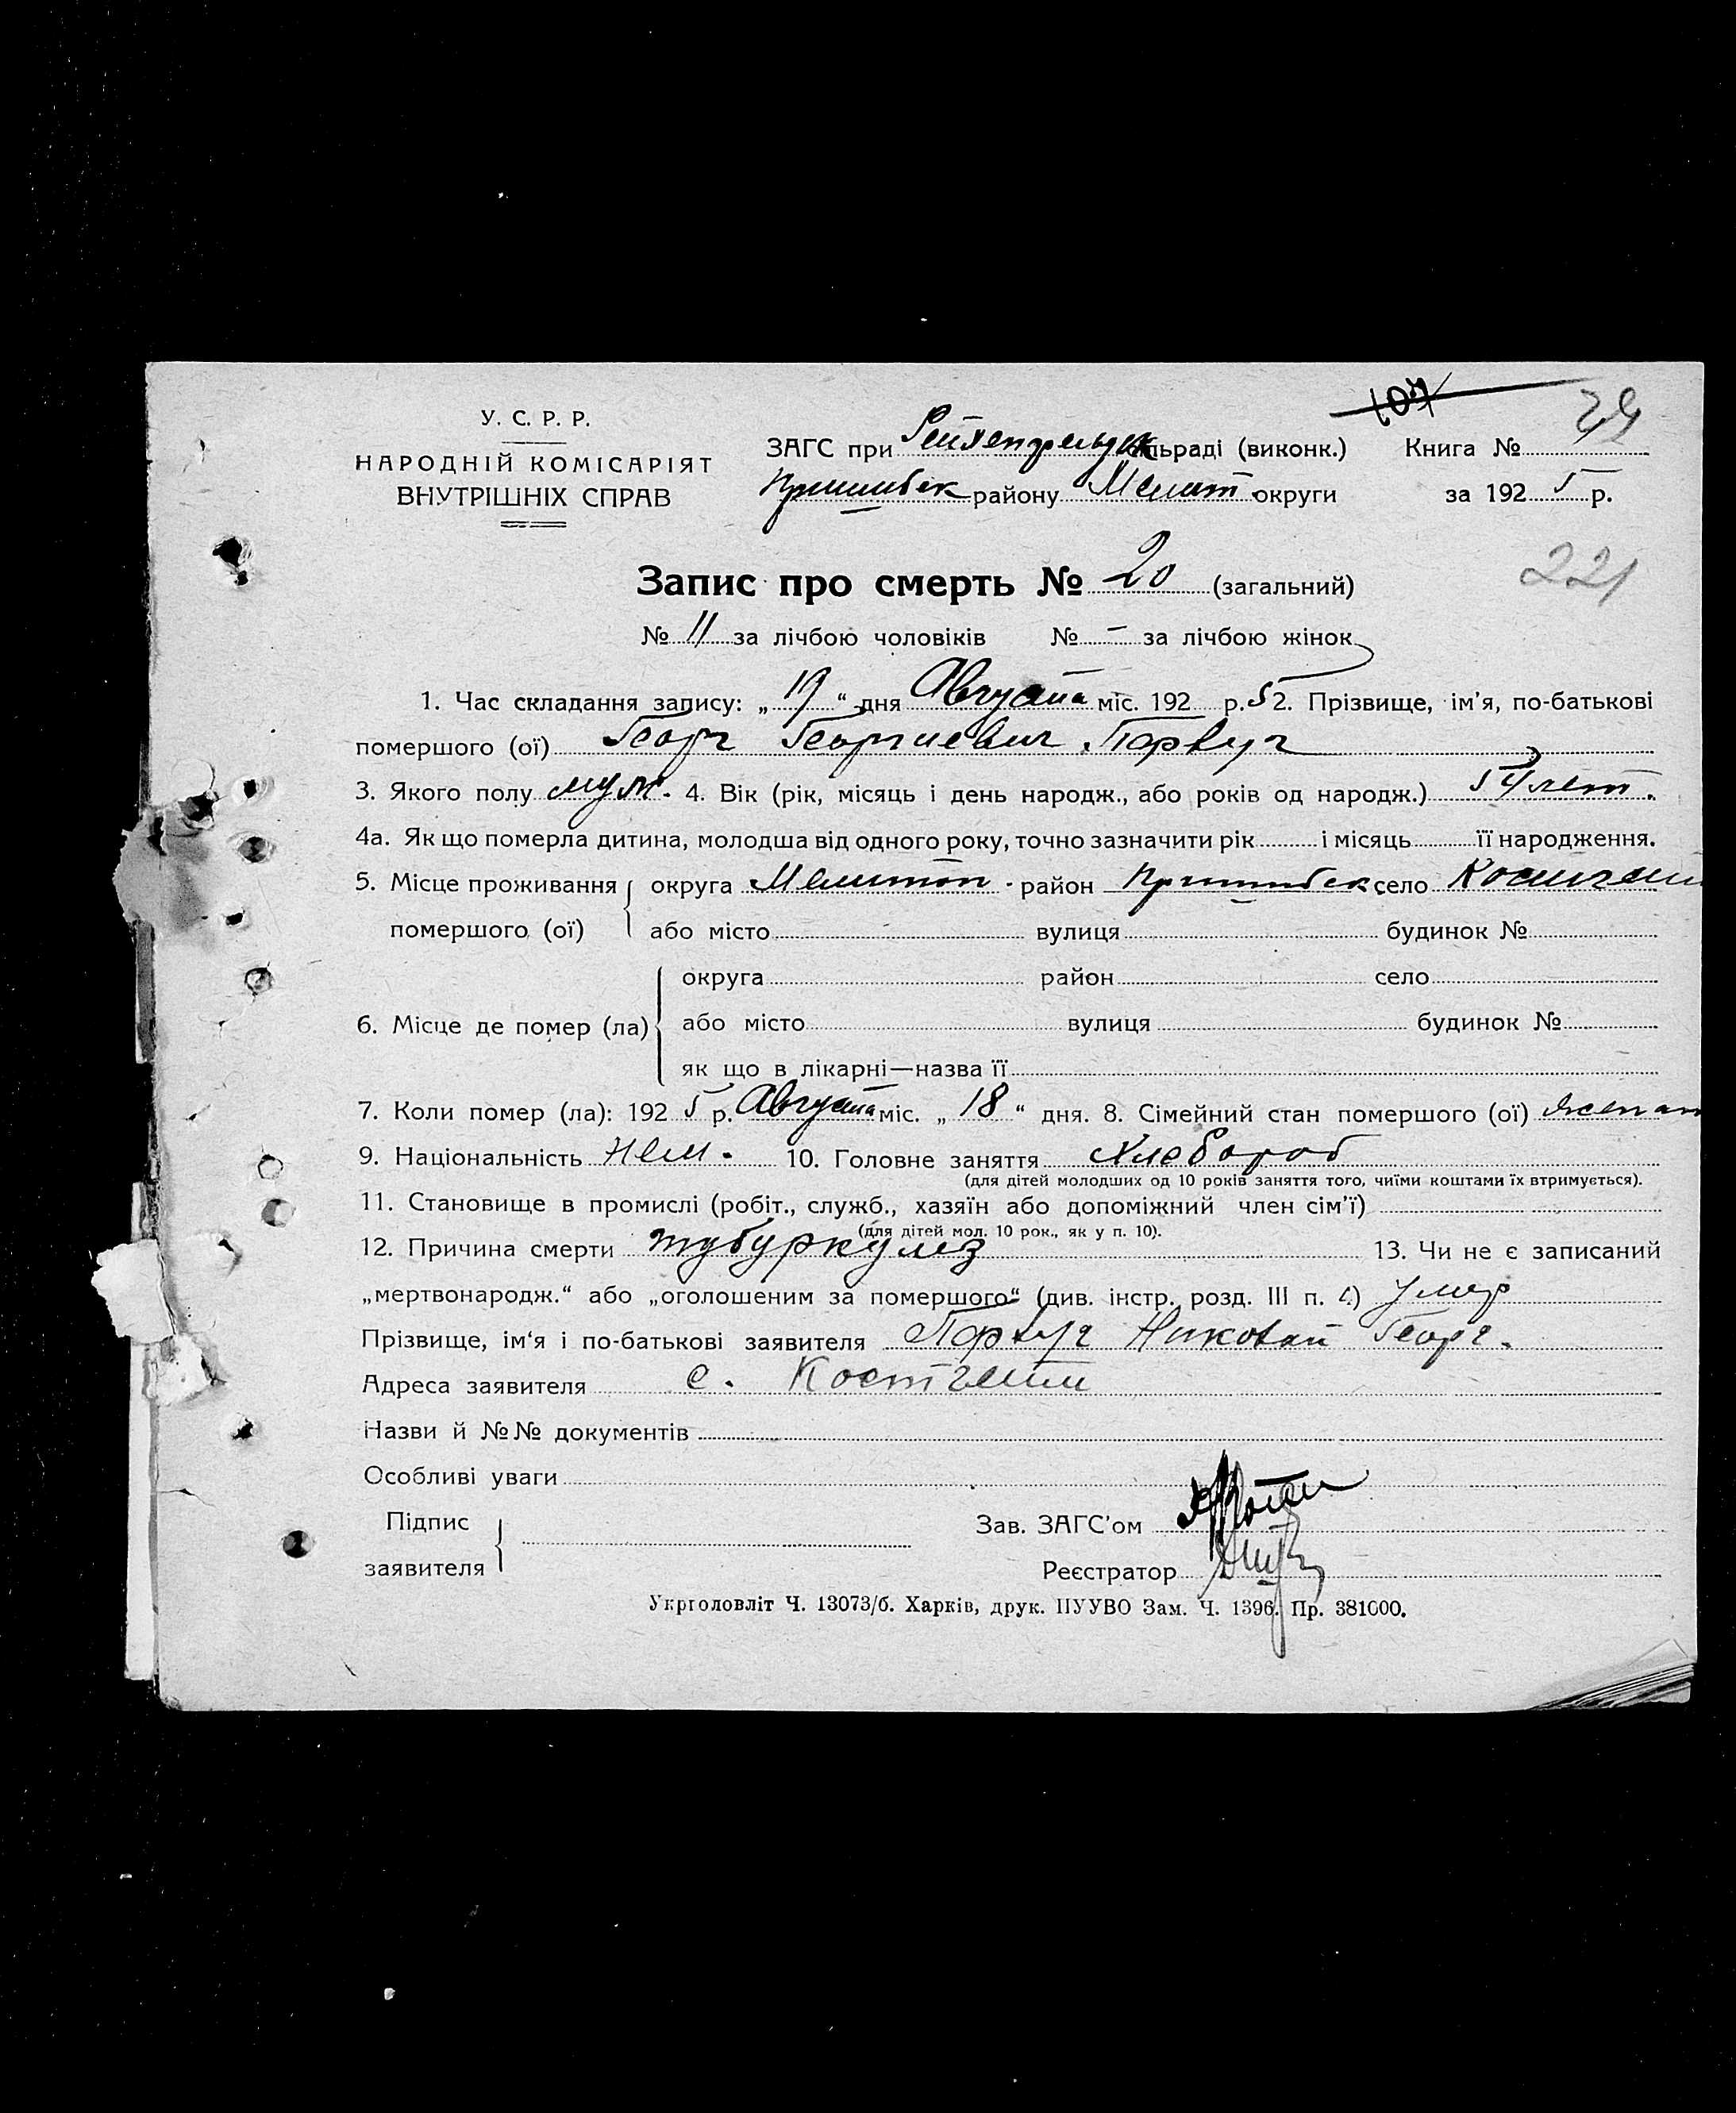 107
39
У. С. Р. Р.
НАРОДНІЙ КОМІСАРІЯТ
ВНУТРІШНІХ СПРАВ
ЗАГС при Рейхенфельдск сільраді (виконк.) Книга №
Пришибск району Мелит. округи за 192 5 р.
221
Запис про смерть № 20 (загальний)
№ 11 за лічбою чоловіків № — за лічбою жінок
1. Час складання запису: „ 19 “ дня Августа міс. 192 р. 5 2. Прізвище, ім'я, по-батькові
помершого (ої) Георг Георгиевич
3. Якого полу муж. 4. Вік (рік, місяць і день народж., або років од народж.) 54 лет.
4а. Як що померла дитина, молодша від одного року, точно зазначити рік і місяць її народження.
5. Місце проживання округа Мелитоп. район Пришибск село Костгейм
помершого (ої) або місто вулиця будинок №
округа район село
6. Місце де помер (ла) або місто вулиця будинок №
як що в лікарні—назва її
7. Коли помер (ла): 192 5 р. Августа міс. „ 18 “ дня. 8. Сімейний стан помершого (ої) женат
9. Національність нем. 10. Головне заняття Хлебороб
(для дітей молодших од 10 років заняття того, чиїми коштами їх втримується).
11. Становище в промислі (робіт., служб., хазяїн або допоміжний член сім'ї)
(для дітей мол. 10 рок., як у п. 10).
12. Причина смерти тубуркулез 13. Чи не є записаний
„мертвонародж.“ або „оголошеним за помершого“ (див. інстр. розд. III п. 4) Умер
Прізвище, ім'я і по-батькові заявителя Николай Георг.
Адреса заявителя с. Костгейм
Назви й №№ документів
Особливі уваги
Підпис
заявителя
Зав. ЗАГС'ом
Реєстратор
Укрголовліт Ч. 13073/б. Харків, друк. ПУУВО Зам. Ч. 1396. Пр. 381000.